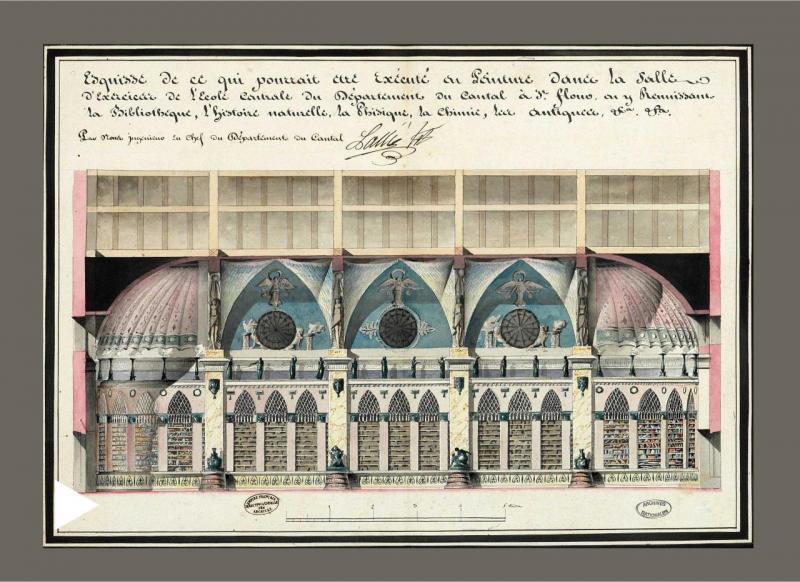 Esquisse de ce qui pourrait être Exécuté en Peinture Dans la Salle
D'Exercices de l'Ecole Centrale du Département du Cantal à St. flour. en y Reunissant
la Bibliothèque, l'histoire naturelle, la Phisique, la Chimie, les antiques, &a. &a.
Par Nous ingenieur en Chef du Département du Cantal
Lallié
1 2 3 4 5
ARCHIVES
NATIONALES